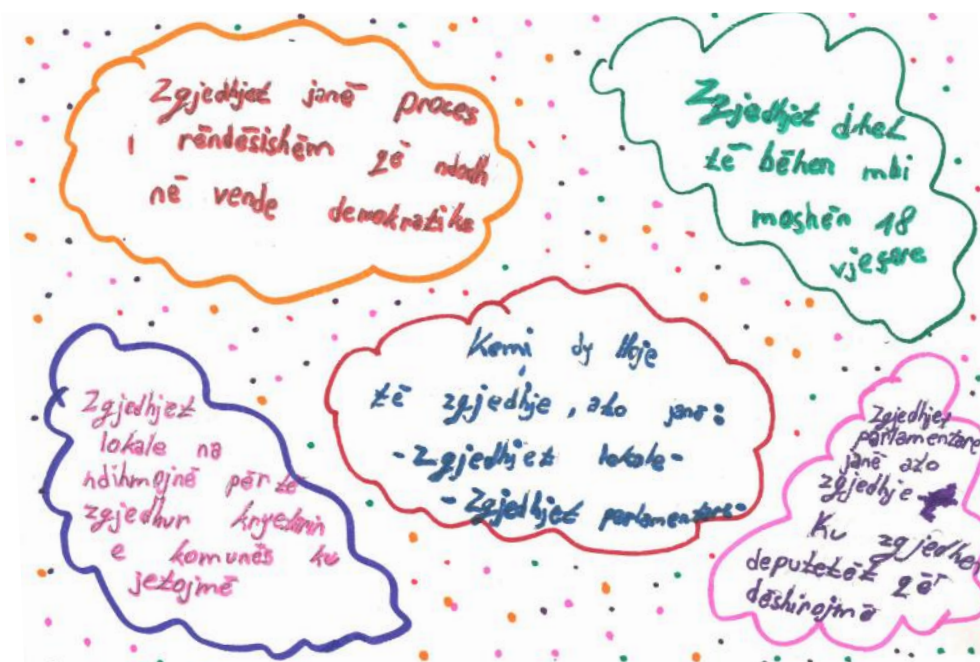 Zgjedhjet janë proces
i rëndësishëm që ndodh
në vende demokratike
Zgjedhjet duhet
të bëhen mbi
moshën 18
vjeçare
Kemi dy lloje
të zgjedhje, ato janë:
- Zgjedhjet lokale -
- Zgjedhjet parlamentare -
Zgjedhjet
lokale na
ndihmojnë për të
zgjedhur kryetarin
e komunës ku
jetojmë
Zgjedhjet
parlamentare
janë ato
zgjedhje
Ku zgjedhet
deputetët që
dëshirojmë